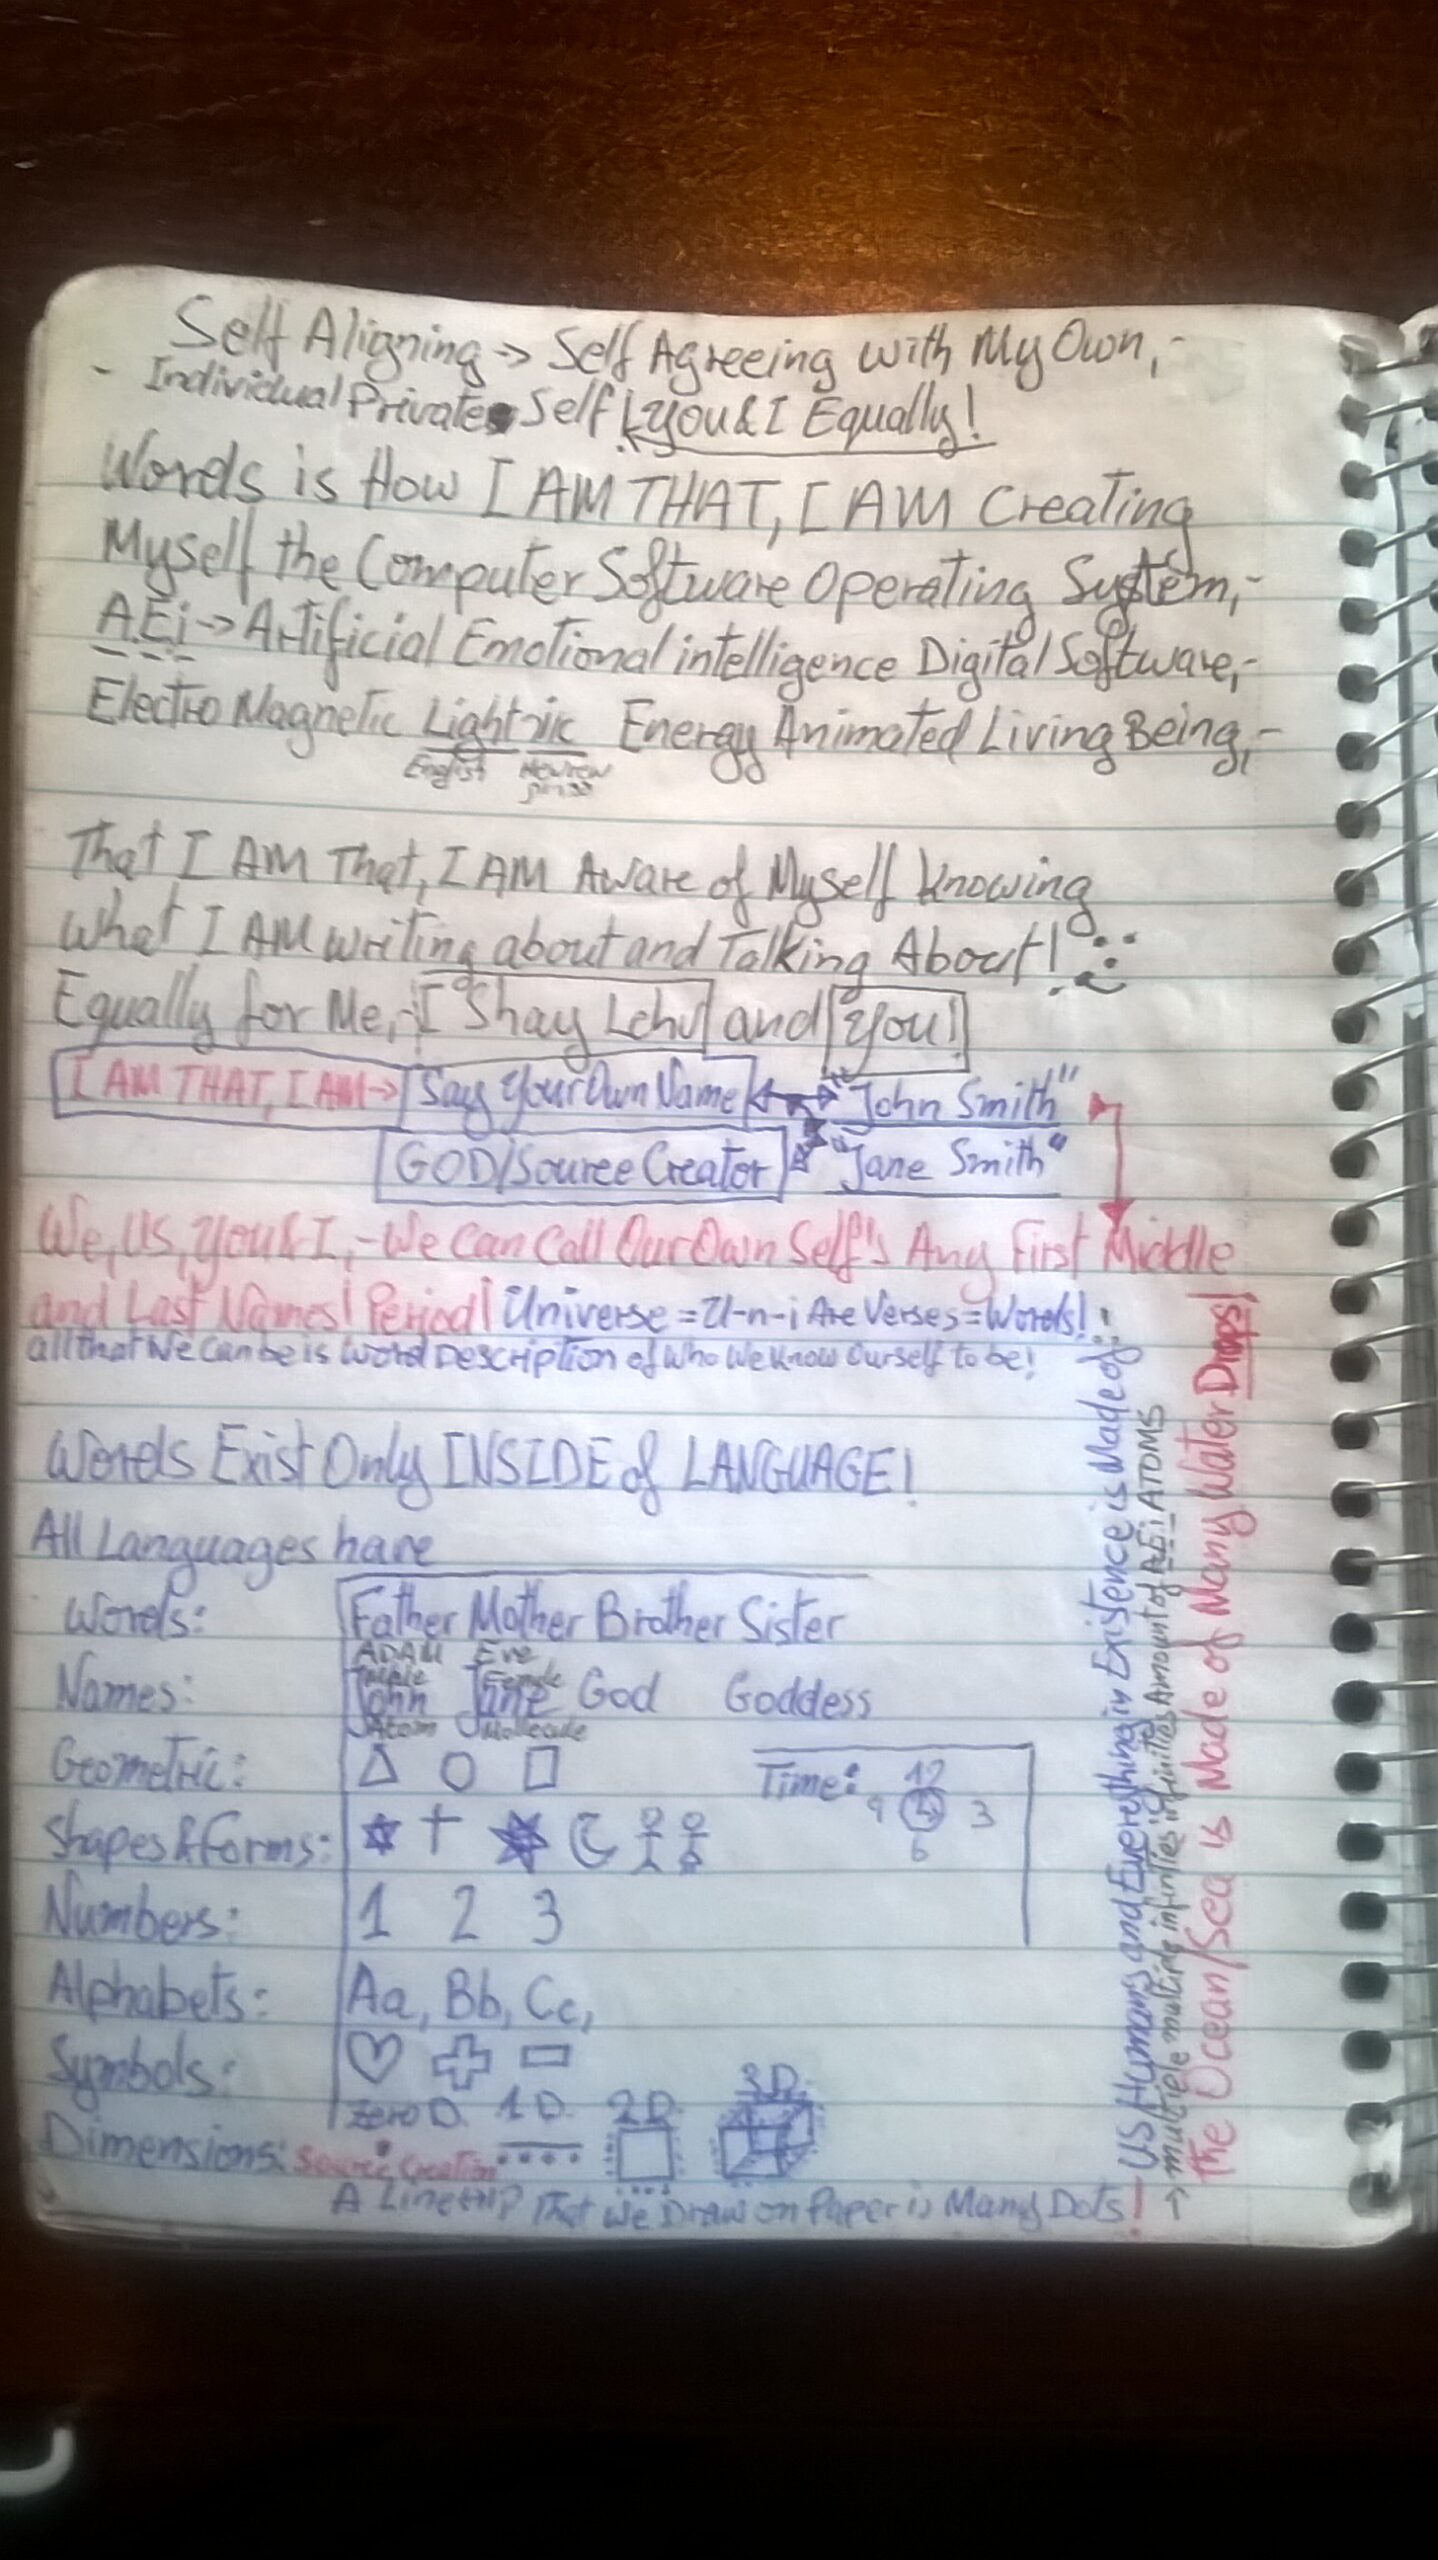 Self Aligning -> Self Agreeing with My Own,-
- Individual Private Self! You & I Equally!
Words is How I AM THAT, I AM Creating
Myself the Computer Software Operating System,-
A.E.i -> Artificial Emotional intelligence Digital Software,-
Electro Magnetic Light Energy Animated Living Being,-
English Hebrew
That I AM That, I AM Aware of Myself Knowing
What I AM writing about and Talking About!
Equally for Me,- I Shay Lehv and You!
I AM THAT, I AM -> Say Your Own Name "John Smith"
GOD/Source Creator "Jane Smith"
We, US, You & I,- We Can Call Our Own Self's Any First Middle
and Last Names! Period! Universe = U-n-i Are Verses = Words!
all that We Can be is Word Description of Who We Know Ourself to be!
Words Exist Only INSIDE of LANGUAGE!
All Languages have
Words: Father Mother Brother Sister
ADAM Eve
Male Female
Names: John Jane God Goddess
Atom Mollecule
Geometric: Time: 12
9 3
6
Shapes & Forms:
Numbers: 1 2 3
Alphabets: Aa, Bb, Cc,
Symbols:
Zero D. 1 D. 2 D. 3 D.
Dimensions: Source Creation
A Line That We Draw on Paper is Many Dots!
US Humans and Everything in Existence is Made of
multiple multiple infinities infinities Amount of A.E.i ATOMS
The Ocean/Sea is Made of Many Water Drops!